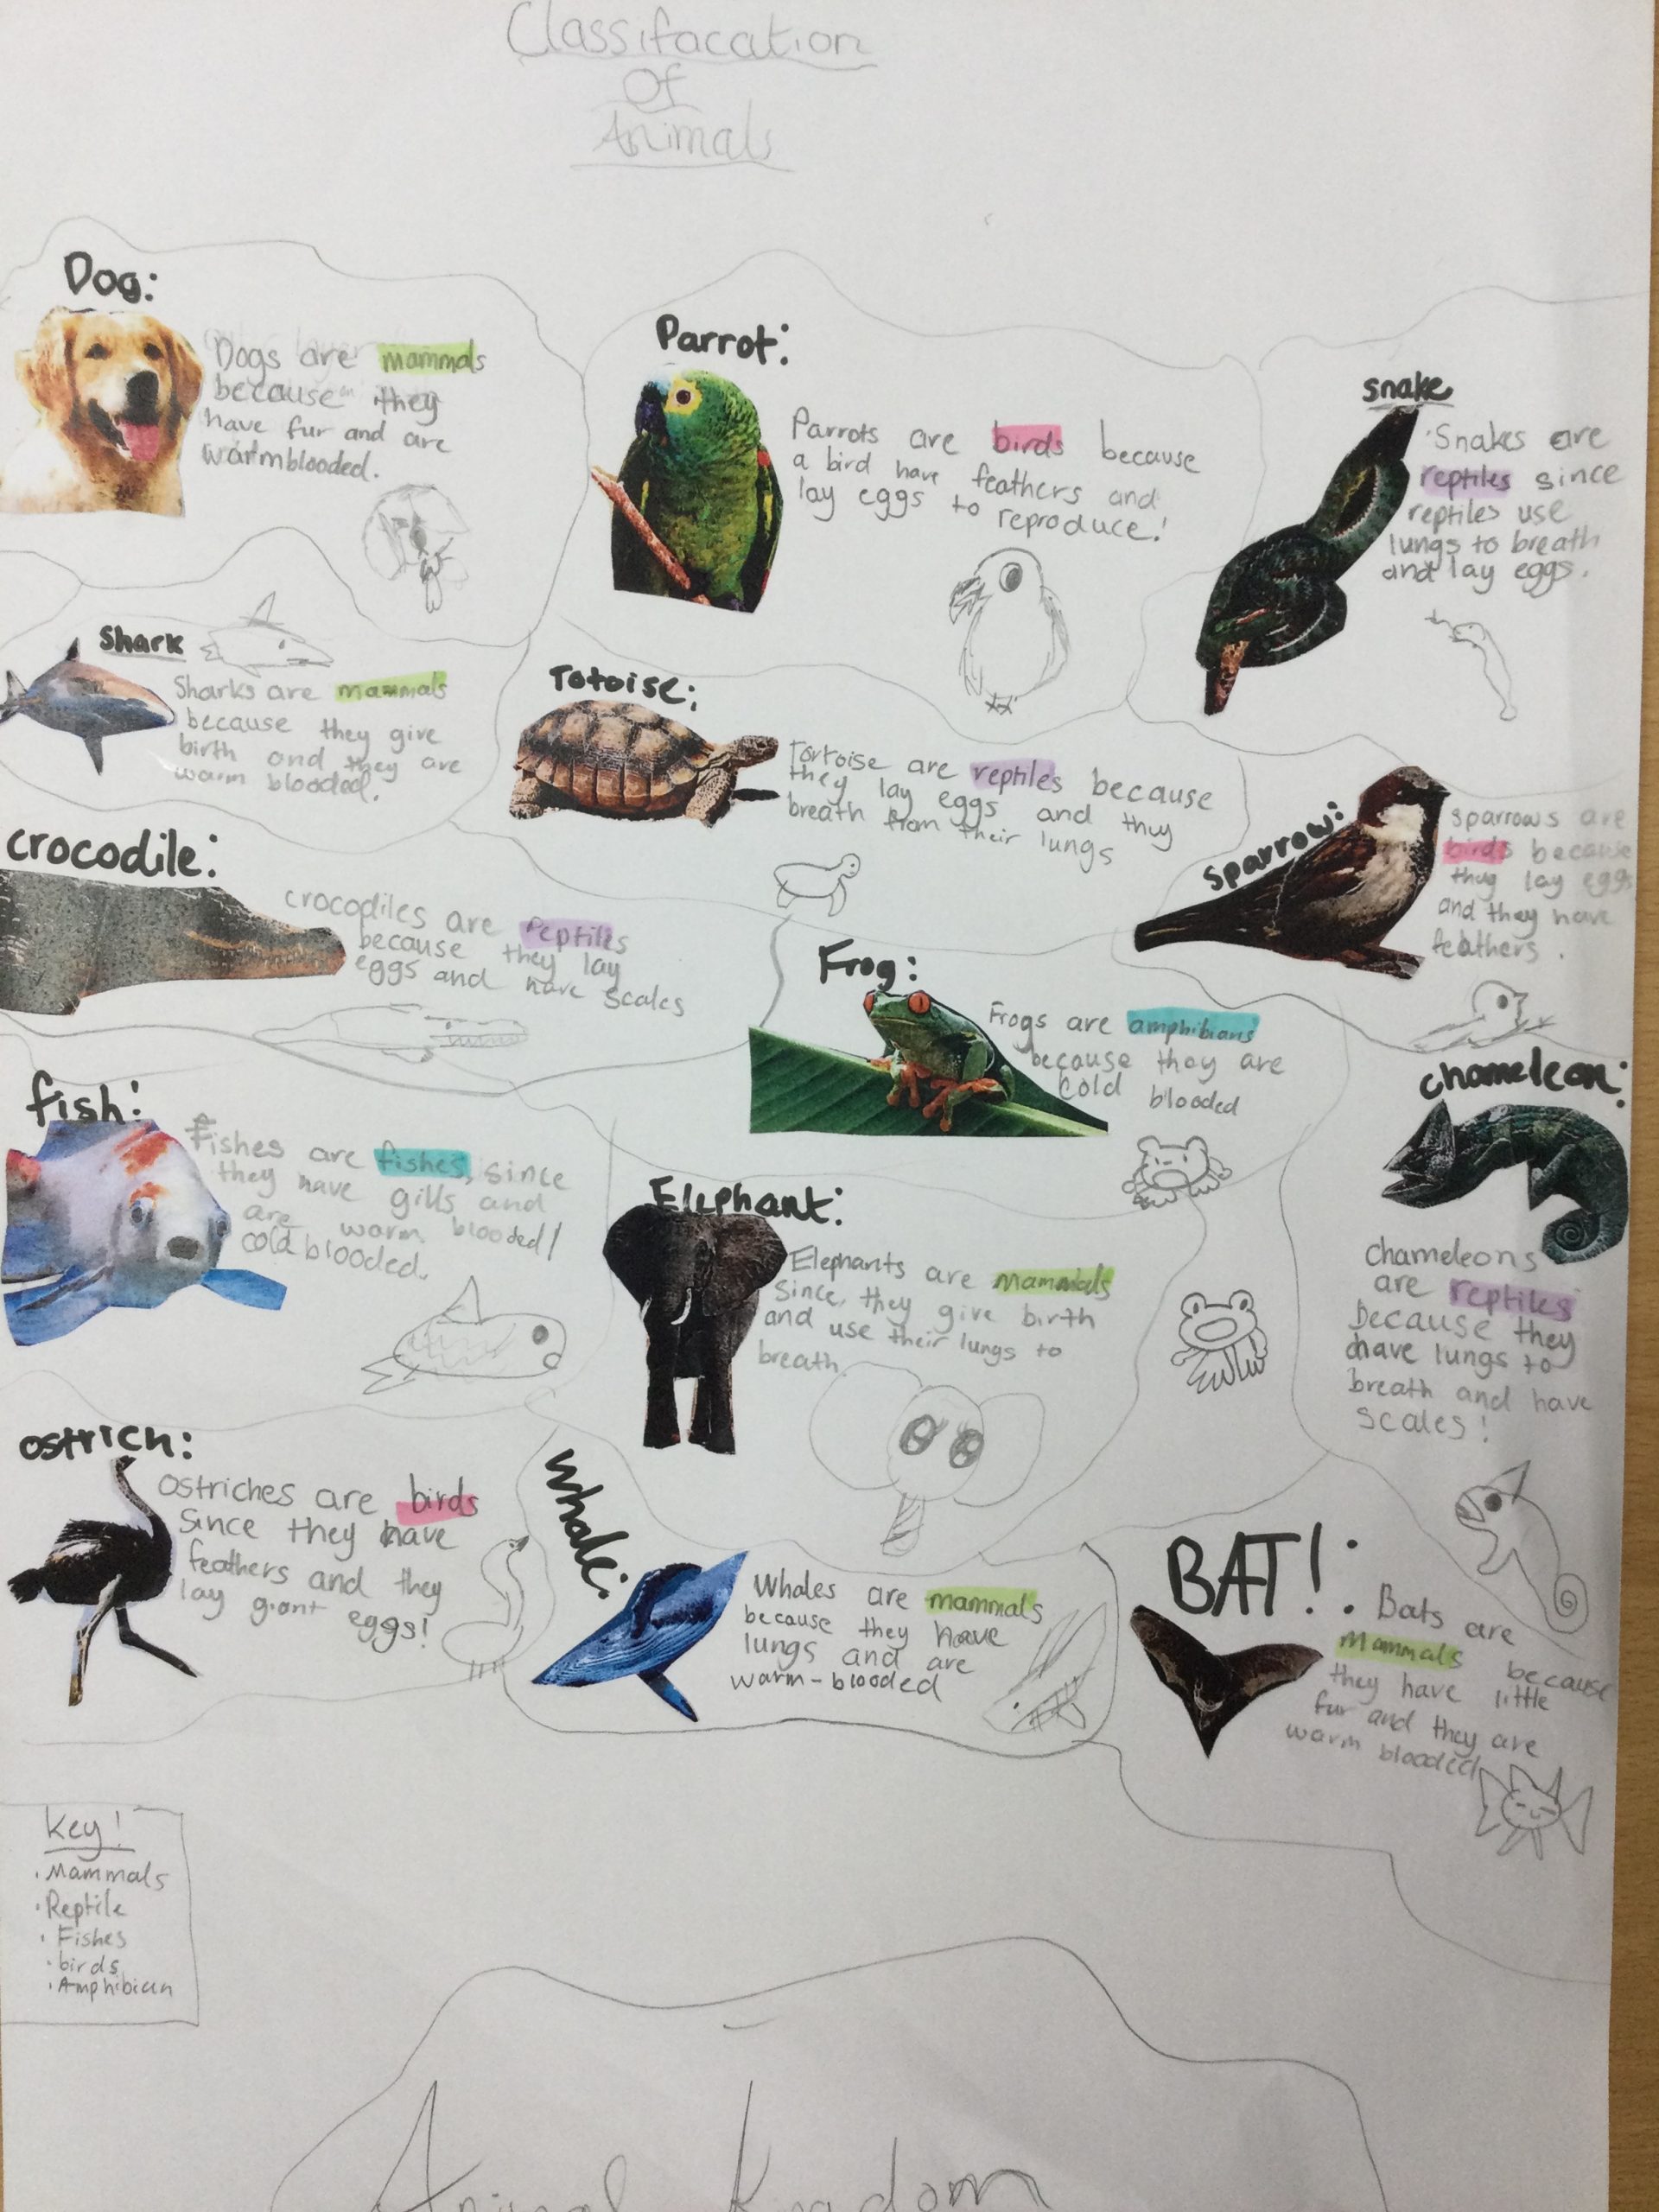 Classifacation
Of
Animals
Dog:
Dogs are mammals
because they
have fur and are
warmblooded.
Parrot:
Parrots are birds because
a bird have feathers and
lay eggs to reproduce!
snake
Snakes are
reptiles since
reptiles use
lungs to breath
and lay eggs.
Shark
Sharks are mammals
because they give
birth and they are
warm blooded.
Totoise:
Tortoise are reptiles because
they lay eggs and they
breath from their lungs
sparrow:
sparrows are
birds because
they lay eggs
and they have
feathers.
crocodile:
crocodiles are reptiles
because they lay
eggs and have scales
Frog:
Frogs are amphibians
because they are
cold blooded
chameleon:
chameleons
are reptiles
because they
have lungs to
breath and have
scales!
fish:
Fishes are fishes, since
they have gills and
are warm blooded/
cold blooded.
Elephant:
Elephants are mammals
since, they give birth
and use their lungs to
breath
ostrich:
Ostriches are birds
since they have
feathers and they
lay giant eggs!
Whale:
Whales are mammals
because they have
lungs and are
warm-blooded
BAT!:
Bats are
Mammals because
they have little
fur and they are
warm blooded
Key!
• Mammals
• Reptile
• Fishes
• birds
• Amphibian
Animal Kngdom